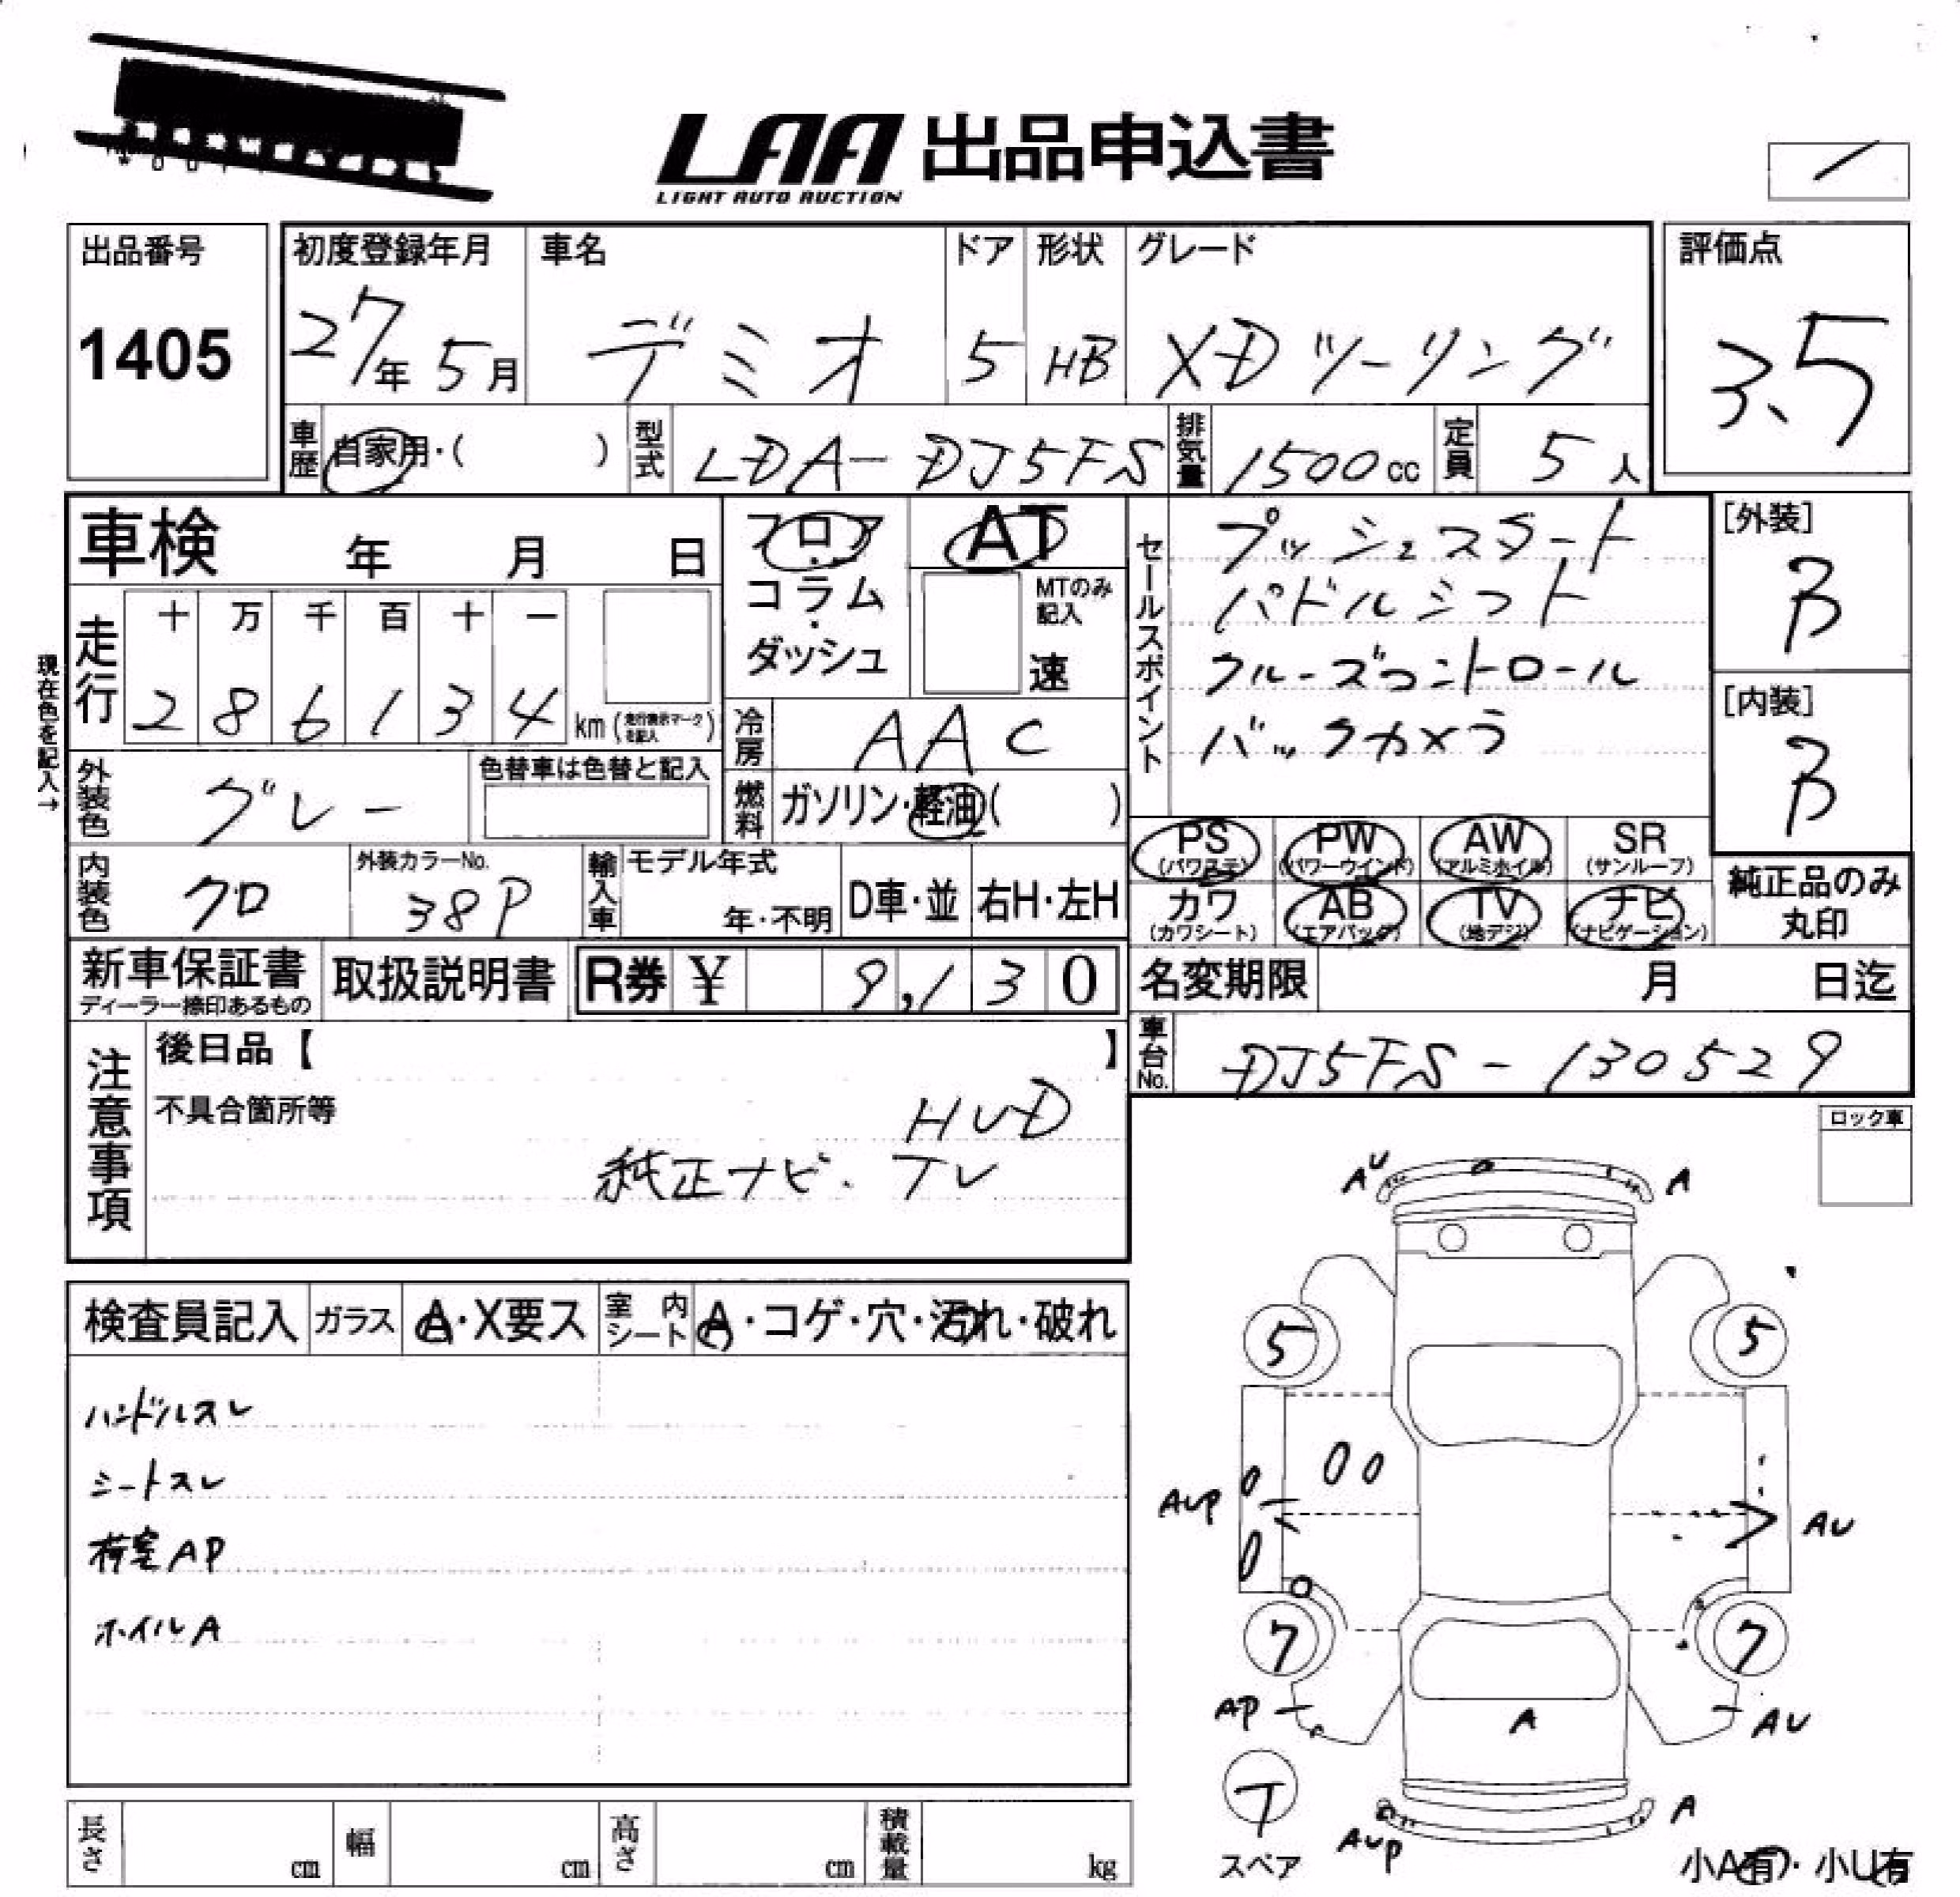 LAA 出品申込書
LIGHT AUTO AUCTION
出品番号
1405
初度登録年月
27年5月
車名
デミオ
ドア
5
形状
HB
グレード
XDツーリング
評価点
3.5
車歴
自家用・( )
型式
LDA-DJ5FS
排気量
1500cc
定員
5人
車検 年 月 日
フロア・コラム・ダッシュ
AT
MTのみ記入
速
セールスポイント
プッシュスタート
パドルシフト
クルーズコントロール
バックカメラ
[外装]
B
[内装]
B
現在色を記入→
走行
十 万 千 百 十 一
2 8 6 1 3 4 km (走行表示マークを記入)
冷房
AAC
外装色
グレー
色替車は色替と記入
燃料
ガソリン・軽油( )
PS (パワステ)
PW (パワーウインド)
AW (アルミホイル)
SR (サンルーフ)
カワ (カワシート)
AB (エアバック)
TV (地デジ)
ナビ (ナビゲーション)
純正品のみ丸印
内装色
クロ
外装カラーNo.
38P
輸入車
モデル年式
年・不明
D車・並
右H・左H
新車保証書
ディーラー捺印あるもの
取扱説明書
R券 ¥ 9,130
名変期限 月 日迄
車台No.
DJ5FS-130529
注意事項
後日品【 】
不具合箇所等
HUD
純正ナビ.TV
ロック車
検査員記入
ガラス
A・X要ス
室内シート
A・コゲ・穴・汚れ・破れ
ハンドルスレ
シートスレ
荷室AP
ホイルA
AU
A
5
5
AUP
AU
7
7
AP
A
AU
T
スペア
AUP
A
小A有・小U有
長さ cm
幅 cm
高さ cm
積載量 kg